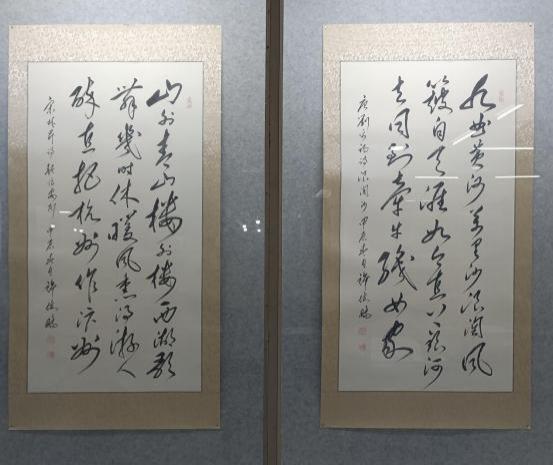 九曲黄河万里沙浪淘风
簸自天涯如今直上银河
去同到牵牛织女家
唐刘禹锡诗浪淘沙 甲辰春月许
山外青山楼外楼西湖歌
舞幾时休暖风熏得游人
醉直把杭州作汴州
宋林升诗题临安邸 甲辰春月许